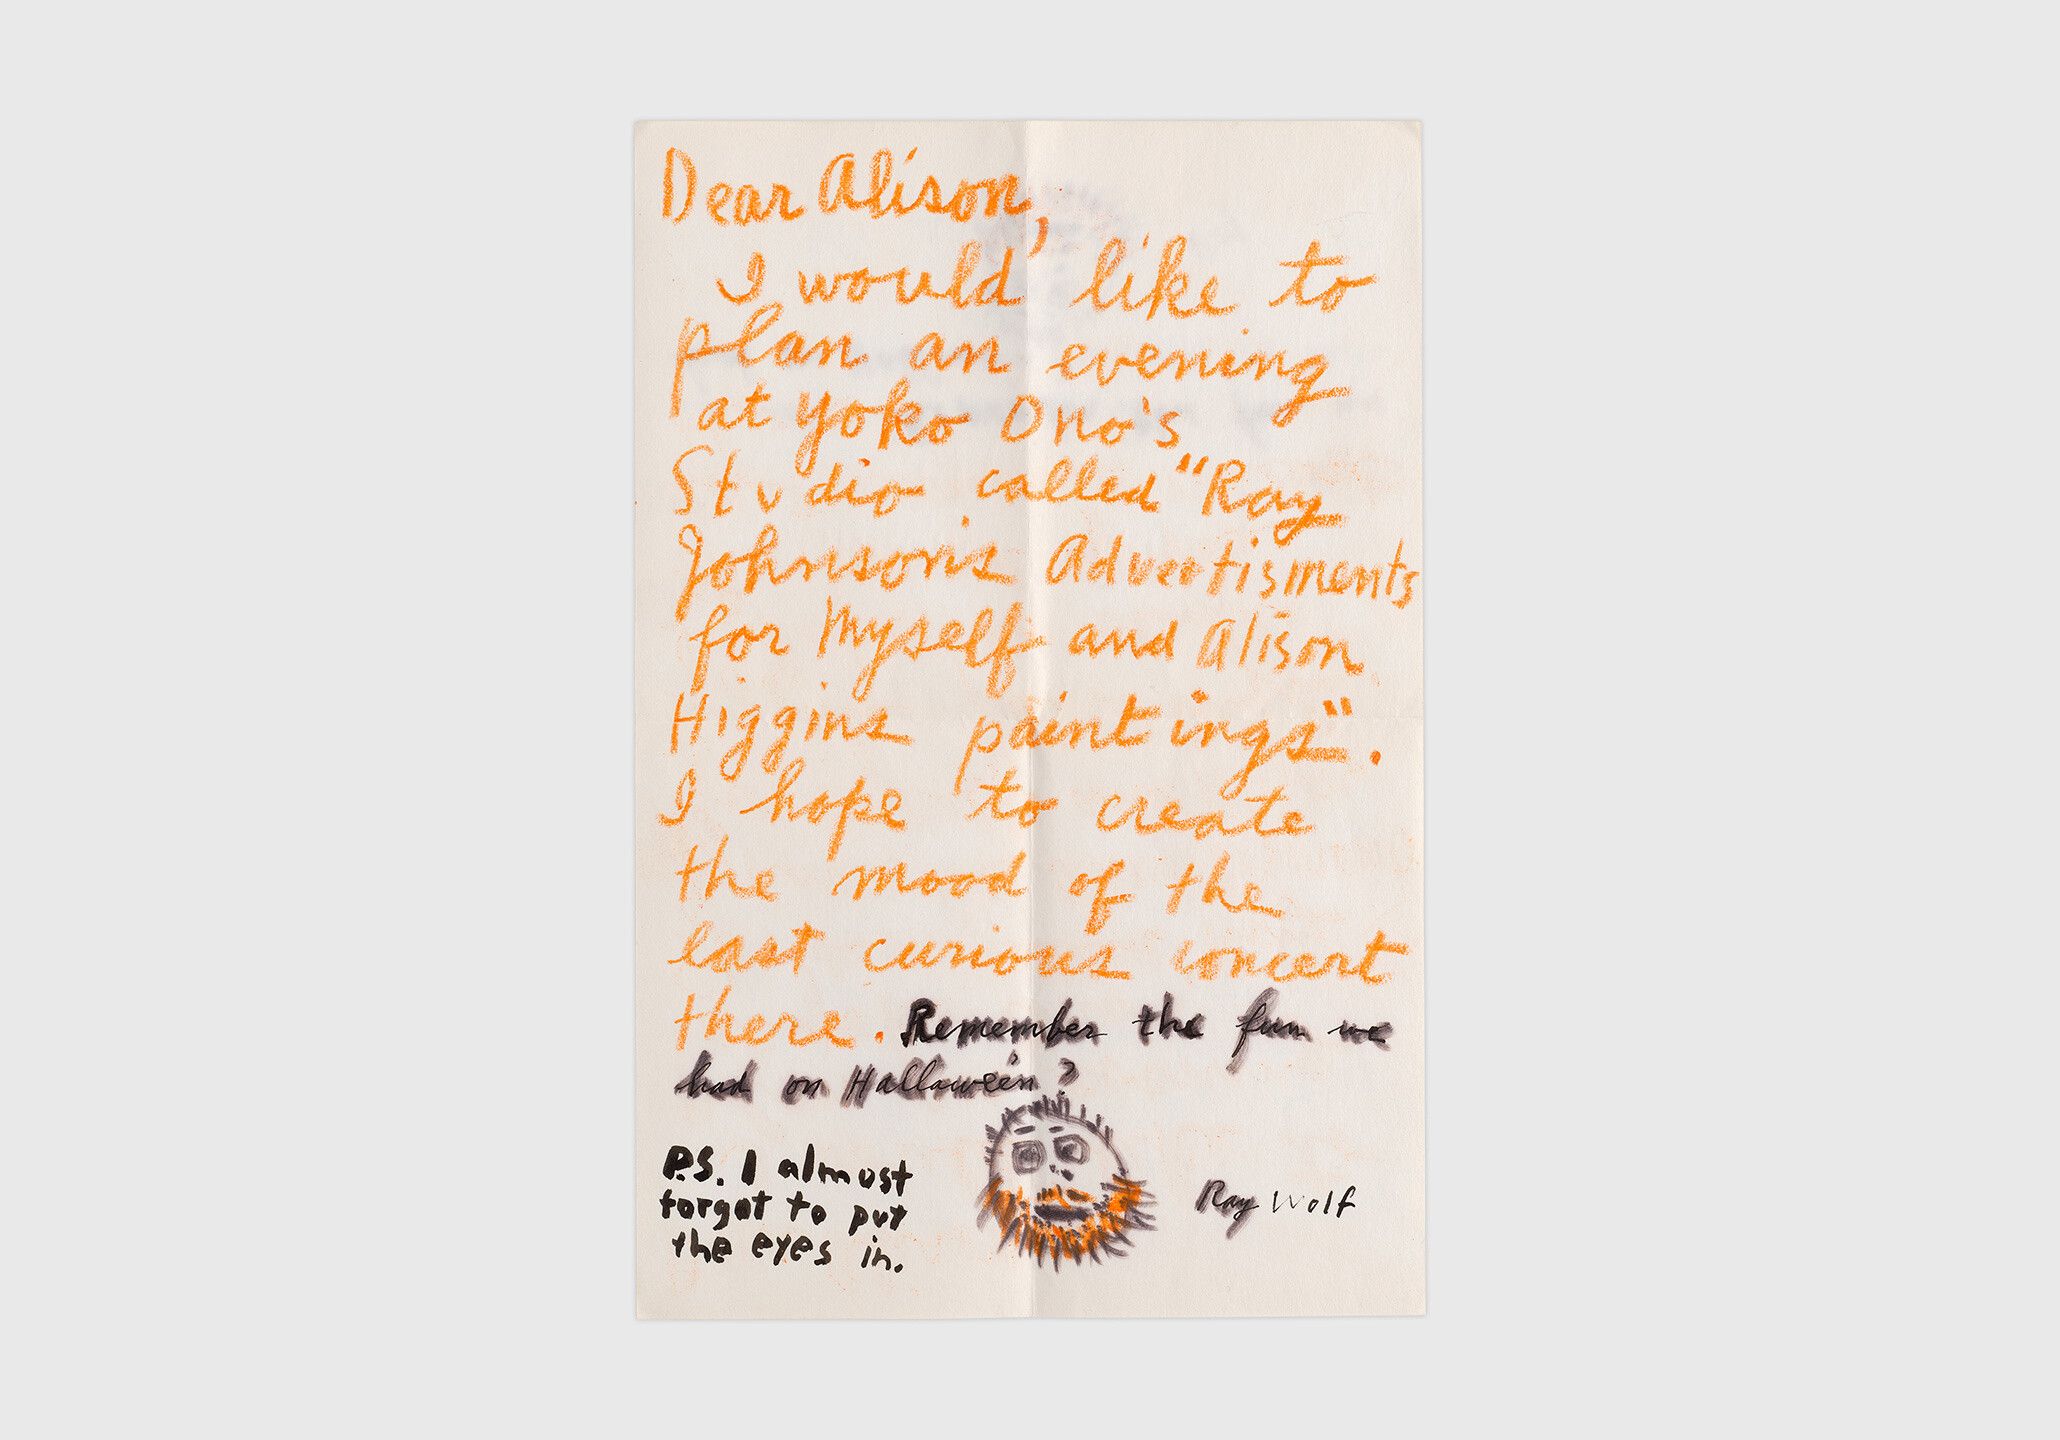 Dear Alison,
I would like to
plan an evening
at Yoko Ono's
Studio called "Ray
Johnson's Advertisments
for Myself and Alison
Higgins paintings".
I hope to create
the mood of the
last curious concert
there. Remember the fun we
had on Hallowe'en?
P.S. I almost
forgot to put
the eyes in.
Ray Wolf